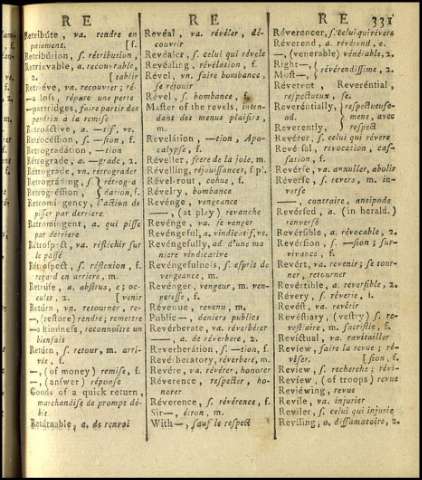 R E
R E
R E 331
Retribúte, va. rendre en
paiement. [f.
Retribútion, f. rétribution,
Retrievable, a. recouvrable,
2. [tablir
Retriéve, va. recouvrer; ré-
—a loss, répare une perte
—partridges, faire partir des
perdrix à la remise
Retroáctive, a. —tif, ve.
Retrocéssion, f. —tion, f.
Retrogradátion, —tion
Rétrograde, a. —grade, 2.
Rétrograde, vn. retrograder
Retrográding, f.
Retrogréssion, f.
Retromingency, l'action de
pisser par derriere
Retromingent, a. qui pisse
par derriere
Retrospéct, va. réfléchir sur
le passé
Retrospect, f. réflexion, f.
regard en arriere, m.
Retruse, a. abstrus, e; oc-
culte, 2. [venir
Retúrn, vn. retourner, re-
—, (restore) rendre; remettre
—a kindness, reconnoître un
bienfait
Retúrn, f. retour, m. arri-
vée, f.
—, (of money) remise, f.
—, (answer) réponse
Goods of a quick return,
marchandise de prompt dé-
bit
Revéal, va. révéler, dé-
couvrir
Revéaler, f. celui qui révéle
Revéaling, révélation, f.
Rével, vn. faire bombance,
se réjouir
Rével, f. bombance, f.
Master of the revels, inten-
dant des menus plaisirs,
m.
Revelátion, —tion, Apo-
calypse, f.
Réveller, frere de la joie, m.
Revelling, réjouissances, f. pl.
Rével-rout, cohue, f.
Révelry, bombance
Revénge, vengeance
—, (at play) revanche
Revénge, va. se venger
Revéngeful, a. vindicatif, ve.
Revéngefully, ad. d'une ma-
niere vindicative
Revéngefulness, f. esprit de
vengeance, m.
Revénger, vengeur, m. ven-
geresse, f.
Révenue, revenu, m.
Public —, deniers publics
Revérberate, va. réverbérer
—, a. de réverbere, 2.
Reverberátion, f. —tion, f.
Revérberatory, réverbere, m.
Revére, va. révérer, honorer
Réverence, respecter, ho-
norer
Réverence, f. révérence, f.
Sir—, étron, m.
With—, sauf le respect
Réverencer, f. celui qui révere
Réverend, a. révérend, e.
—, (venerable) vénérable, 2.
Right—,
Most—, révérendissime, 2.
Réverent, Reveréntial,
respectueux,
Reveréntially,
Réverently,
respectueuse-
ment, avec
respect
Revérer, f. celui qui révere
Revérsal, revocation, cas-
sation, f.
Revérse, va. annuller, abolir
Revérse, f. revers, m. in-
verse
—, contraire, antipode
Revérsed, a. (in herald.)
renversé
Revérsible, a. révocable, 2.
Revérsion, f. —sion; sur-
vivance, f.
Revért, va. revenir; se tour-
ner, retourner
Revértible, a. reversible, 2.
Révery, f. rêverie, 1.
Revést, va. revêtir
Revéstiary, (vestry) f. re-
vestiaire, m. sacristie, f.
Revíctual, va. ravitailler
Review, faire la revue; ré-
viser. [sion, f.
Review, f. recherche; révi-
Review, (of troops) revue
Reviéwing, revue
Revíle, va. injurier
Revíler, f. celui qui injurie
Revíling, a. diffamatoire, 2.